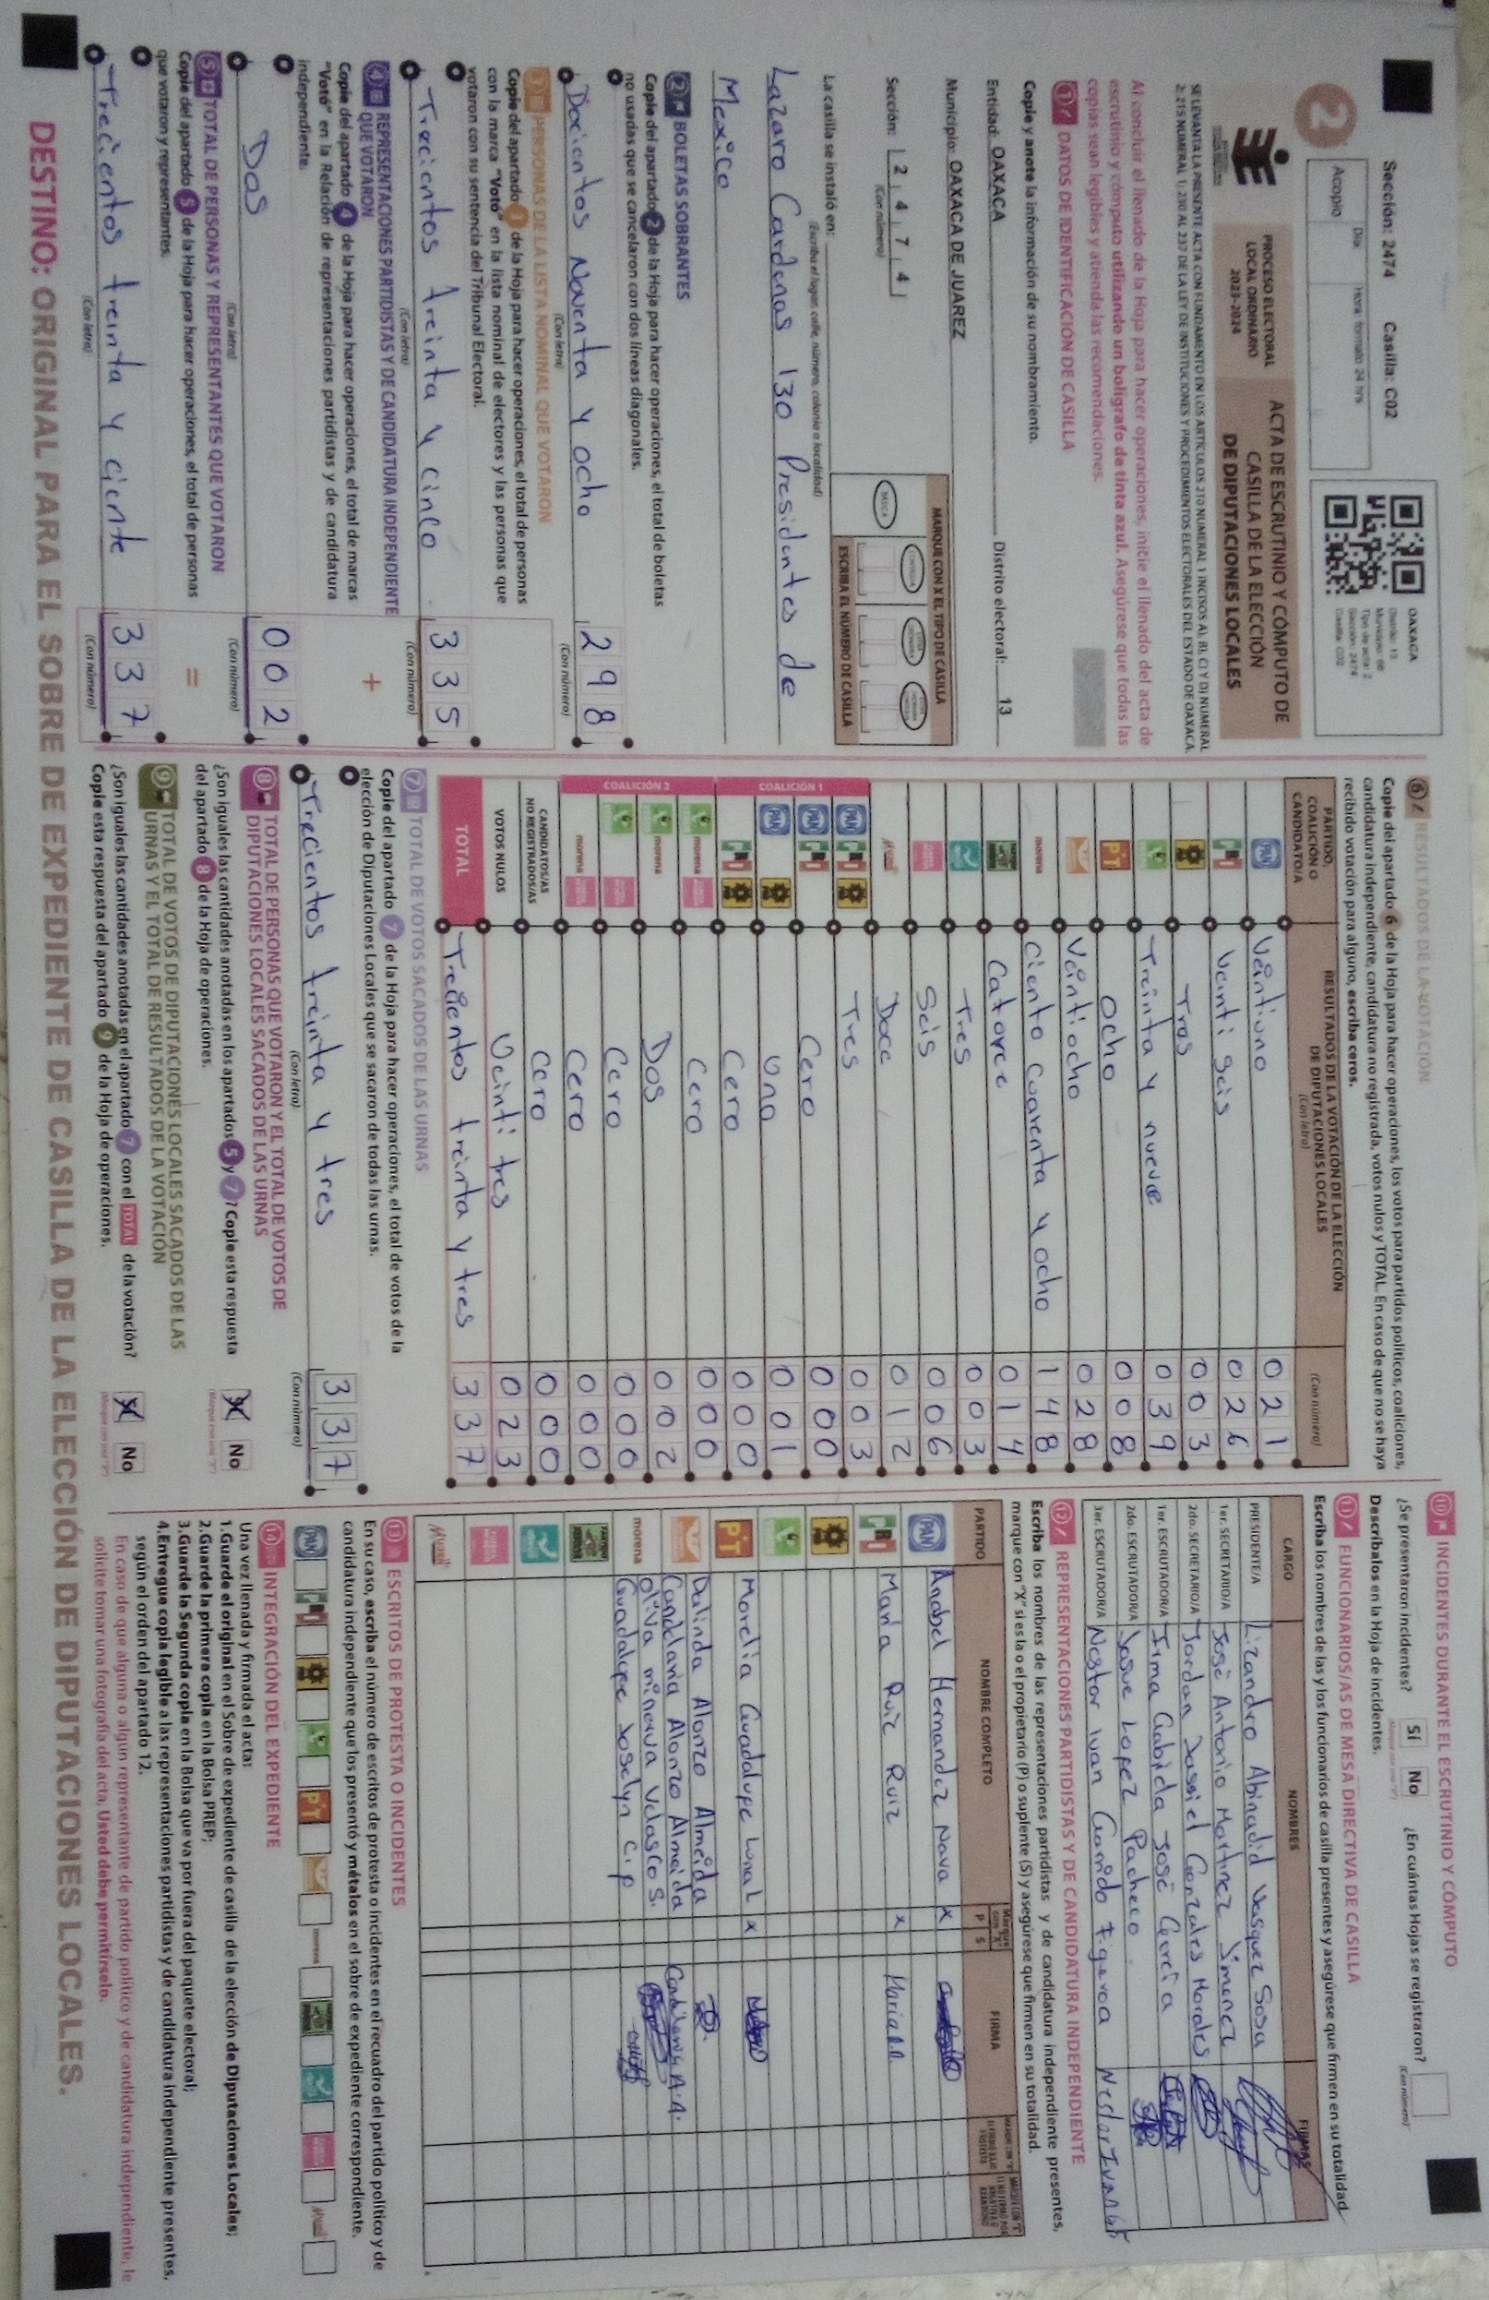 Sección: 2474 Casilla: C02
Día: Hora - formato 24 hrs
Acopio
OAXACA
Distrito: 13
Tipo de acta: 2
Sección: 2474
Casilla: C02
2
PROCESO ELECTORAL
LOCAL ORDINARIO
2023-2024
ACTA DE ESCRUTINIO Y CÓMPUTO DE
CASILLA DE LA ELECCIÓN
DE DIPUTACIONES LOCALES
Al concluir el llenado de la Hoja para hacer operaciones, inicie el llenado del acta de
escrutinio y cómputo utilizando un bolígrafo de tinta azul. Asegúrese que todas las
copias sean legibles y atienda las recomendaciones.
1 DATOS DE IDENTIFICACIÓN DE CASILLA
Copie y anote la información de su nombramiento.
Entidad: OAXACA Distrito electoral: 13
Municipio: OAXACA DE JUAREZ
Sección: 2 4 7 4
(Con número)
MARQUE CON X EL TIPO DE CASILLA
BÁSICA
ESCRIBA EL NÚMERO DE CASILLA
La casilla se instaló en:
(Escriba el lugar, calle, número, colonia o localidad)
Lazaro Cardenas 130 Presidentes de
Mexico
2 BOLETAS SOBRANTES
Copie del apartado 2 de la Hoja para hacer operaciones, el total de boletas
no usadas que se cancelaron con dos líneas diagonales.
Docientos Noventa y ocho 298
(Con letra) (Con número)
3 PERSONAS DE LA LISTA NOMINAL QUE VOTARON
Copie del apartado 3 de la Hoja para hacer operaciones, el total de personas
con la marca "Votó" en la lista nominal de electores y las personas que
votaron con su sentencia del Tribunal Electoral.
Trecientos treinta y cinco 335
(Con letra) (Con número)
4 REPRESENTACIONES PARTIDISTAS Y DE CANDIDATURA INDEPENDIENTE
QUE VOTARON
+
Copie del apartado 4 de la Hoja para hacer operaciones, el total de marcas
"Votó" en la Relación de representaciones partidistas y de candidatura
independiente.
Dos 002
(Con letra) (Con número)
5 TOTAL DE PERSONAS Y REPRESENTANTES QUE VOTARON
=
Copie del apartado 5 de la Hoja para hacer operaciones, el total de personas
que votaron y representantes.
Trecientos treinta y ciente 337
(Con letra) (Con número)
6 RESULTADOS DE LA VOTACIÓN
Copie del apartado 6 de la Hoja para hacer operaciones, los votos para partidos políticos, coaliciones,
candidatura independiente, candidatura no registrada, votos nulos y TOTAL. En caso de que no se haya
recibido votación para alguno, escriba ceros.
PARTIDO,
COALICIÓN O
CANDIDATO/A
RESULTADOS DE LA VOTACIÓN DE LA ELECCIÓN
DE DIPUTACIONES LOCALES
(Con letra) (Con número)
PAN Veintiuno 021
PRI Veinti seis 026
PRD Tres 003
Treinta y nueve 039
PT ocho 008
Veinti ocho 028
morena Ciento Cuarenta y ocho 148
Catorce 014
Tres 003
Seis 006
Doce 012
COALICIÓN 1
PAN PRI PRD Tres 003
PAN PRI Cero 000
PAN PRD Uno 001
PRI PRD Cero 000
COALICIÓN 2
morena Cero 000
morena Dos 002
Cero 000
morena Cero 000
CANDIDATOS/AS
NO REGISTRADOS/AS Cero 000
VOTOS NULOS Veinti tres 023
TOTAL Trecientos treinta y tres 337
7 TOTAL DE VOTOS SACADOS DE LAS URNAS
Copie del apartado 7 de la Hoja para hacer operaciones, el total de votos de la
elección de Diputaciones Locales que se sacaron de todas las urnas.
Trecientos treinta y tres 337
(Con letra) (Con número)
8 TOTAL DE PERSONAS QUE VOTARON Y EL TOTAL DE VOTOS DE
DIPUTACIONES LOCALES SACADOS DE LAS URNAS
¿Son iguales las cantidades anotadas en los apartados 5 y 7? Copie esta respuesta
del apartado 8 de la Hoja de operaciones.
X No
9 TOTAL DE VOTOS DE DIPUTACIONES LOCALES SACADOS DE LAS
URNAS Y EL TOTAL DE RESULTADOS DE LA VOTACIÓN
¿Son iguales las cantidades anotadas en el apartado 7 con el TOTAL de la votación?
Copie esta respuesta del apartado 9 de la Hoja de operaciones.
X No
10 INCIDENTES DURANTE EL ESCRUTINIO Y CÓMPUTO
¿Se presentaron incidentes? Sí No ¿En cuántas Hojas se registraron?
(Con número)
Descríbalos en la Hoja de incidentes.
11 FUNCIONARIOS/AS DE MESA DIRECTIVA DE CASILLA
Escriba los nombres de las y los funcionarios de casilla presentes y asegúrese que firmen en su totalidad
CARGO NOMBRES FIRMAS
PRESIDENTE/A Lizandro Abinadid Vasquez Sosa
1er. SECRETARIO/A José Antonio Martinez Jimenez
2do. SECRETARIO/A Jordan Jassiel Gonzales Morales
1er. ESCRUTADOR/A Irma Gabriela José Garcia
2do. ESCRUTADOR/A Josue Lopez Pacheco
3er. ESCRUTADOR/A Nestor Ivan Garrido Figueroa
12 REPRESENTACIONES PARTIDISTAS Y DE CANDIDATURA INDEPENDIENTE
Escriba los nombres de las representaciones partidistas y de candidatura independiente presentes,
marque con "X" si es la o el propietario (P) o suplente (S) y asegúrese que firmen en su totalidad.
PARTIDO NOMBRE COMPLETO P S FIRMA
PAN Anabel Hernandez Nava x
PRI Maria Ruiz Ruiz x
PRD
PT Morelia Guadalupe Luna L x
Dalinda Alonzo Almeida
Candelaria Alonzo Almeida Candelaria A.A.
morena Oliva minerva Velasco S.
Guadalupe Joselyn C.P
13 ESCRITOS DE PROTESTA O INCIDENTES
En su caso, escriba el número de escritos de protesta o incidentes en el recuadro del partido político y de
candidatura independiente que los presentó y métalos en el sobre de expediente correspondiente.
PAN PRI PRD PT morena
14 INTEGRACIÓN DEL EXPEDIENTE
Una vez llenada y firmada el acta:
1.Guarde el original en el Sobre de expediente de casilla de la elección de Diputaciones Locales;
2.Guarde la primera copia en la Bolsa PREP;
3.Guarde la Segunda copia en la Bolsa que va por fuera del paquete electoral;
4.Entregue copia legible a las representaciones partidistas y de candidatura independiente presentes,
según el orden del apartado 12.
En caso de que alguna o algún representante de partido político y de candidatura independiente, le
solicite tomar una fotografía del acta, Usted debe permitírselo.
DESTINO: ORIGINAL PARA EL SOBRE DE EXPEDIENTE DE CASILLA DE LA ELECCIÓN DE DIPUTACIONES LOCALES.